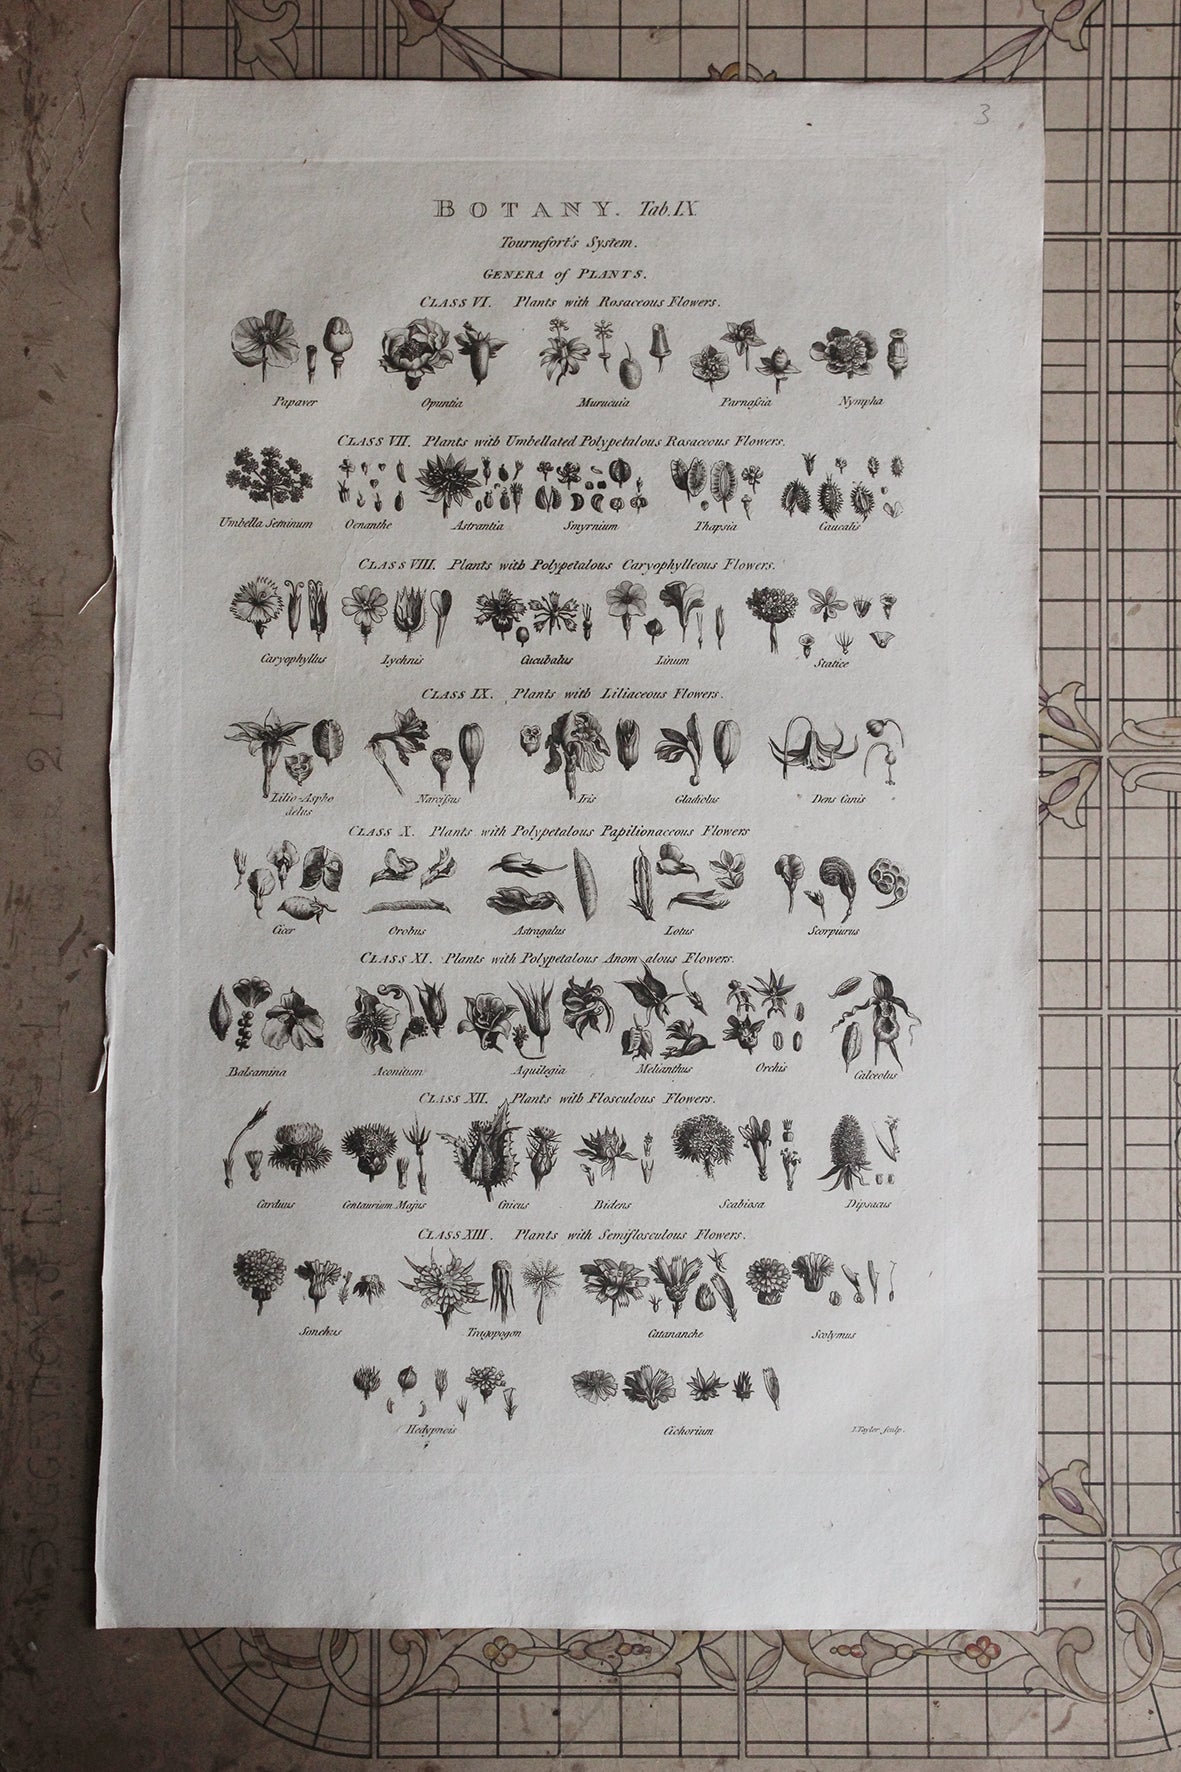 3
BOTANY. Tab. IX
Tournefort's System.
GENERA of PLANTS.
CLASS VI. Plants with Rosaceous Flowers.
Papaver Opuntia Murucuia Parnassia Nympha
CLASS VII. Plants with Umbellated Polypetalous Rosaceous Flowers.
Umbella Seminum Oenanthe Astrantia Smyrnium Thapsia Caucalis
CLASS VIII. Plants with Polypetalous Caryophylleous Flowers.
Caryophyllus Lychnis Cucubalus Linum Statice
CLASS IX. Plants with Liliaceous Flowers.
Lilio-Aspho Narcissus Iris Gladiolus Dens Canis
delus
CLASS X. Plants with Polypetalous Papilionaceous Flowers
Cicer Orobus Astragalus Lotus Scorpiurus
CLASS XI. Plants with Polypetalous Anom alous Flowers.
Balsamina Aconitum Aquilegia Melianthus Orchis Calceolus
CLASS XII. Plants with Flosculous Flowers.
Carduus Centaurium Majus Cnicus Bidens Scabiosa Dipsacus
CLASS XIII. Plants with Semiflosculous Flowers.
Sonchus Tragopogon Catananche Scolymus
Hedypnois Cichorium
I. Taylor sculp.